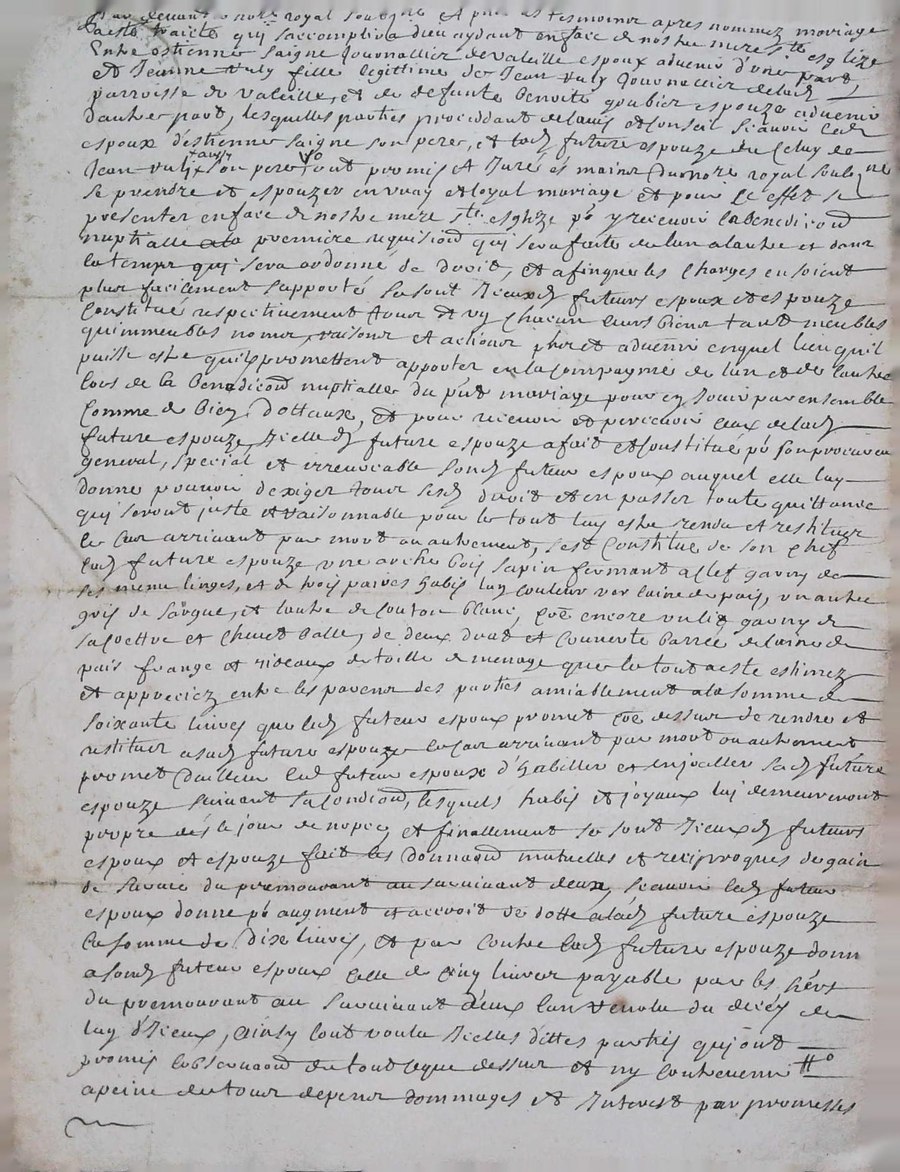 Par devant le nore royal soubsigné et pnts les tesmoins apres nommez mariage
a esté traicté qui s'accomplira dieu aydant en face de nostre mere ste esglize
Entre estienne saigne journallier de valeille espoux advenir d'une part,
et Jeanne vuly fille legittime de Jean vuly journallier de lad
parroisse de valeille, et de deffunte benoite goubier espouze advenir
d'autre part, lesquelles parties proceddant de l'avis et conseil scavoir led
espoux d'estienne saigne son pere, et lad future espouze du celuy de
Jean vuly aussy son pere ont promis et juré és mains du nore royal soubsigne
se prendre et espouzer en vray et loyal mariage et pour ce effet se
presenter en face de nostre mere ste esglize pr y recevoir la benediction
nuptialle a la premiere requisiond qui sera faite de l'un a l'autre et dans
le temps qui sera ordonné de droit, et afin que les charges en soient
plus facilement supporté se sont iceux d futurs espoux et espouze
Constitué respectivement tous et un chacun leurs biens tant meubles
qu'immeubles noms, raisons et actions pnts et advenir en quel lieu qu'il
puisse estre qu'ils promettent apporter en la compagnie de l'un et de l'autre
lors de la benediciond nuptialle du pnt mariage pour en jouir par ensemble
Comme de bien dottaux, et pour recevoir et percevoir ceux de lad
future espouze icelle d future espouze a fait et constitué pr son procureur
general, special et irrevocable sond futeur espoux auquel elle luy
donne pouvoir d'exiger tous sesd droit et en passer toute quittance
qui seront juste et raisonnable pour le tout luy estre rendu et restituer
le cas arrivant par mort ou autrement, s'est constitué de son chef
lad future espouze une arche bois sapin fermant a clef garny de
ses menu linges, et de trois paires habis l'un couleur laine de pais, un autre
gris de sargue, et l'autre de couton blanc, coe encore un lit garny de
sa coettre et chevet balle, de deux drat et couverte barrée de laine de
pais frange et rideaux de toille de menage que le tout a esté estimez
et appreciez entre les parens des parties amiablement a la somme de
soixante livres que led futeur espoux promet coe dessus de rendre et
restituer a sad future espouze le cas arrivant par mort ou autrement
promet d'ailleur led futeur espoux d'habiller et enjoaller sad future
espouze suivant sa condiciond, lesquels habis et joyaux lui demeureront
propre dés le jour de nopces et finallement se sont iceux d futurs
espoux et espouze fait les donnaond mutuelles et reciproques de gain
de survie du premourant au survivant deux, scavoir led futeur
espoux donne pr augment et accroit de dotte a lad future espouze
la somme de dix livres, et par contre lad future espouze donn
a sond futeur espoux celle de cinq livres payable par les hérs
du premourant au survivant d'eux l'an revolu du décés de
l'uy d'iceux, ainsy l'ont voulu icelles dittes parties qui ont
promis l'observaond du tout ce que dessus et ny contrevenir
a peine de tous depens dommages et interest par promesses